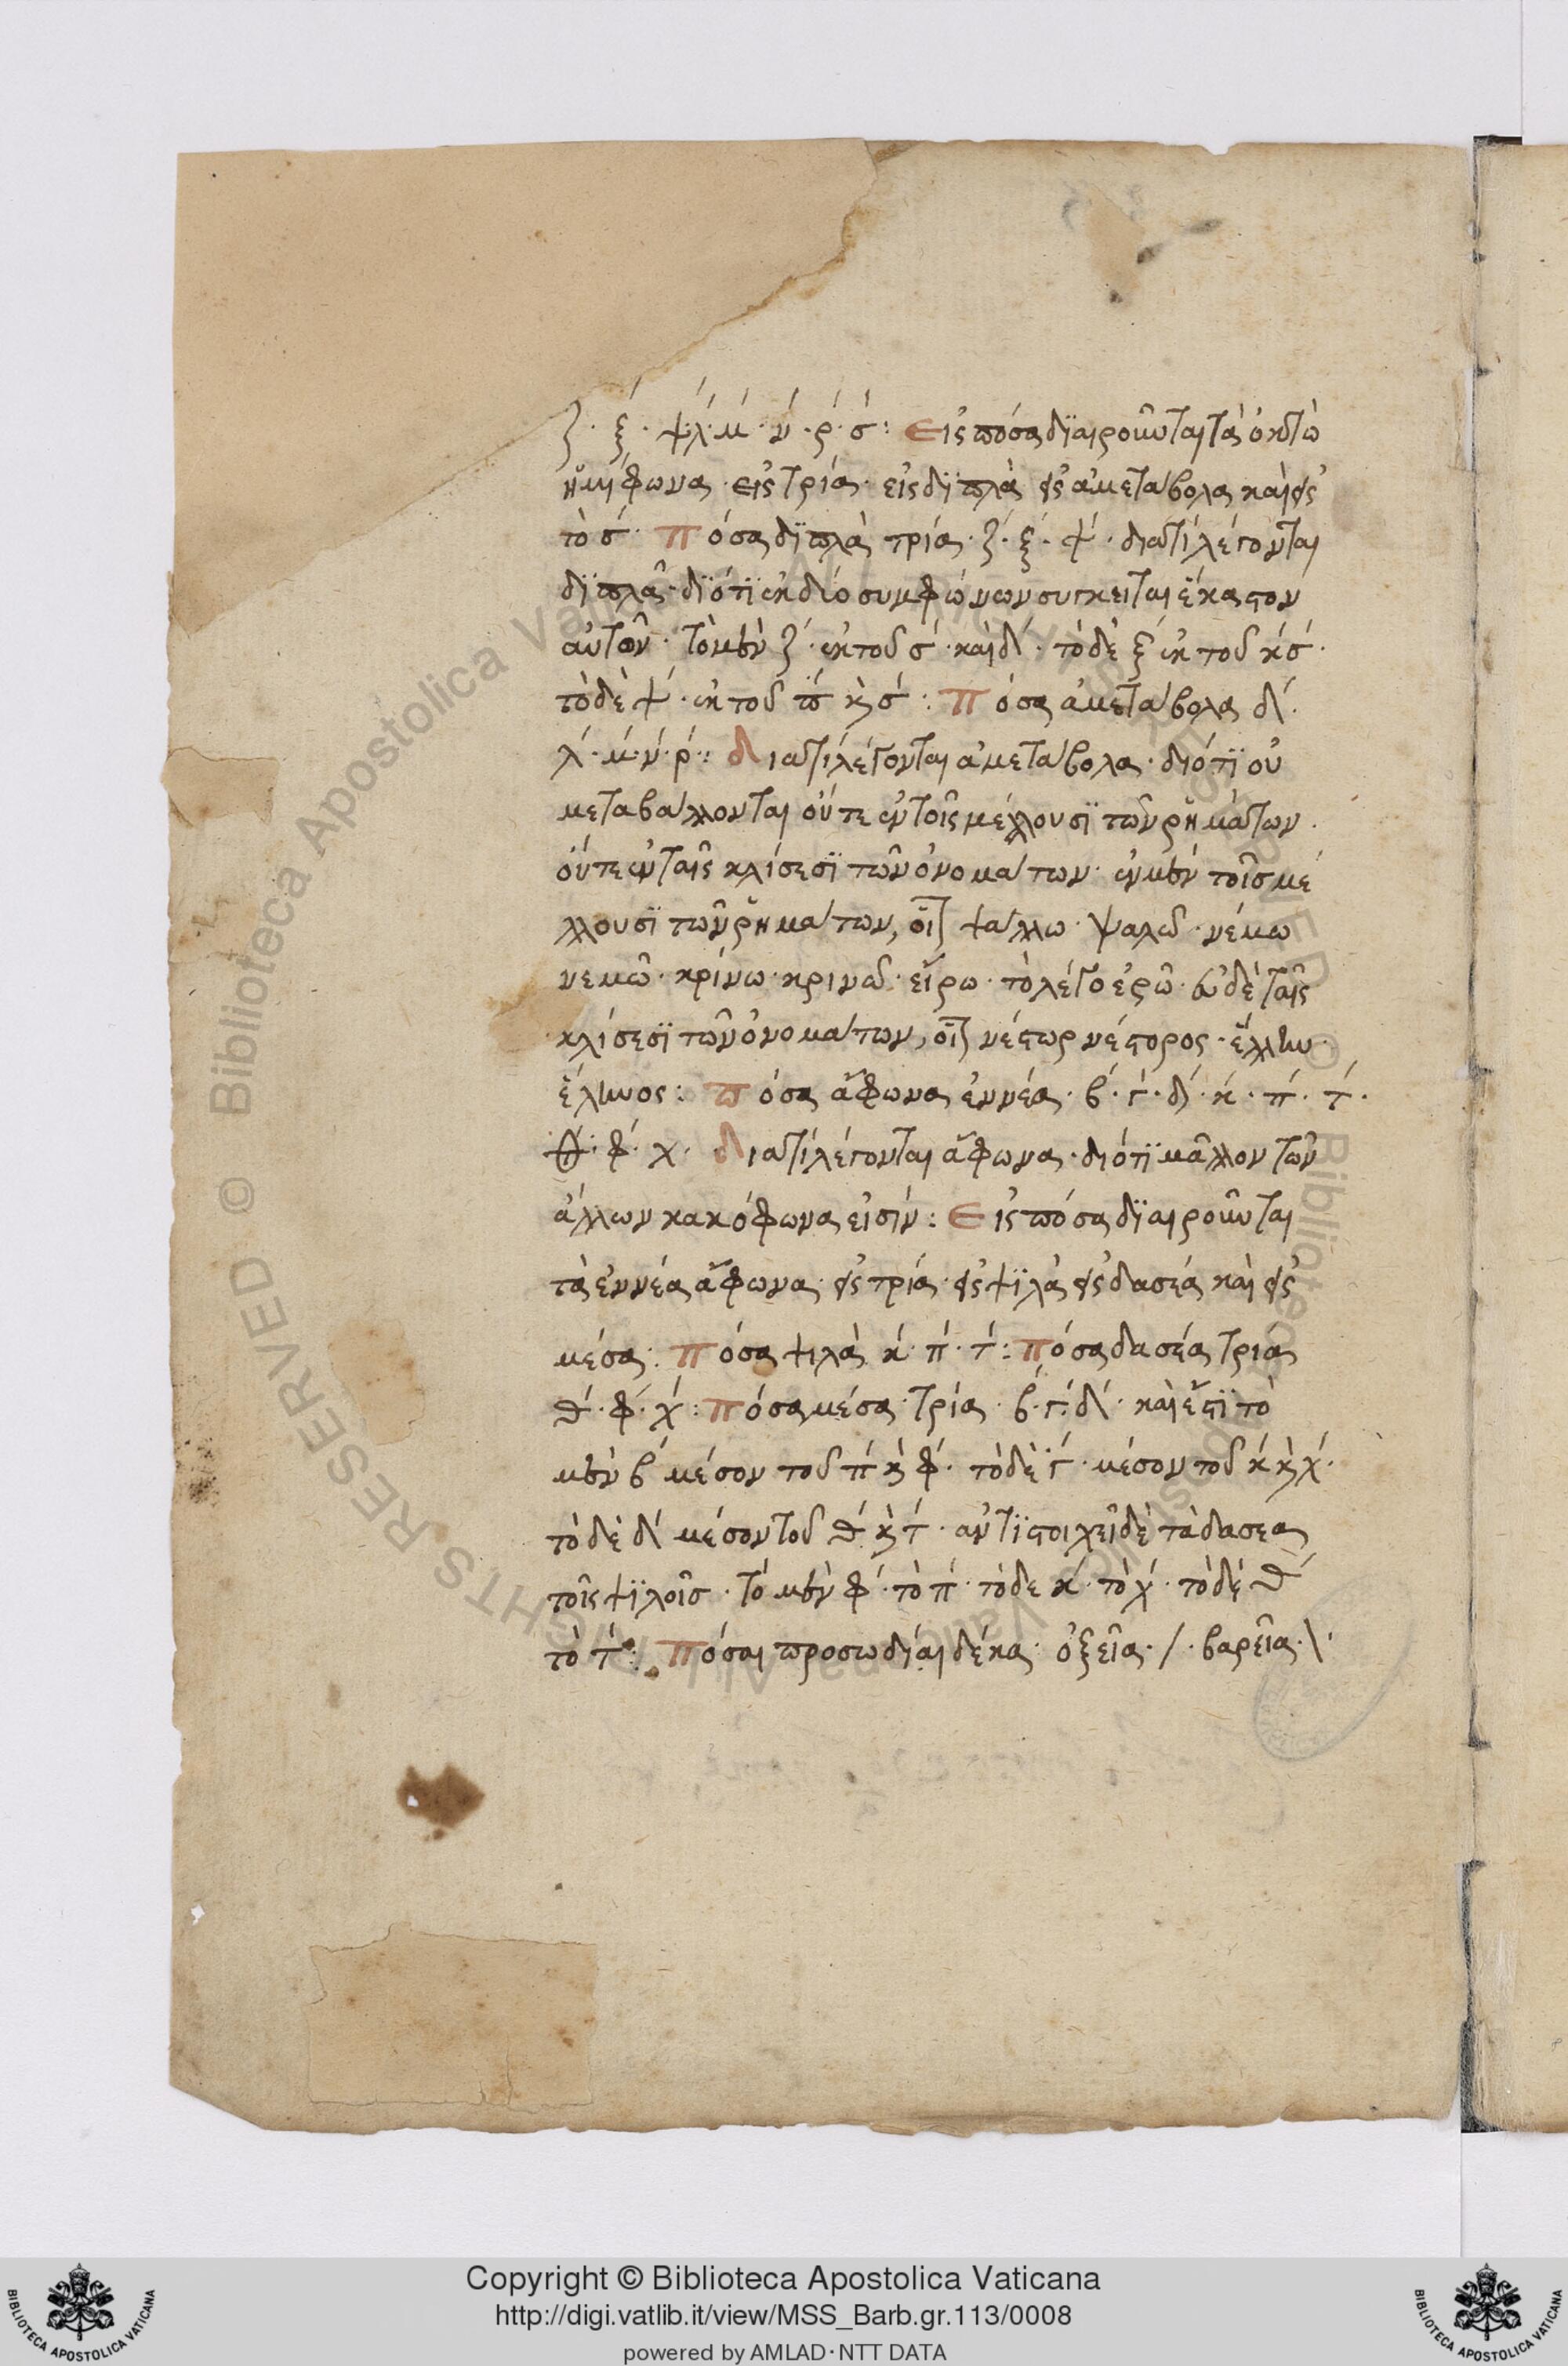 ζ· ξ· ψ·λ·μ·ν·ρ·σ: Εἰς πόσα διαιροῦνται τὰ ὀκτὼ
ἡμίφωνα· εἰς τρία· εἰς διπλὰ εἰς ἀμετάβολα καὶ εἰς
τὸ σ· Πόσα διπλὰ τρία· ζ· ξ· ψ· διατί λέγονται
διπλᾶ· διότι ἐκ δύο συμφώνων σύγκειται ἕκαστον
αὐτῶν· τὸ μὲν ζ· ἐκ τοῦ σ· καὶ δ· τὸ δὲ ξ ἐκ τοῦ κ σ·
τὸ δὲ ψ· ἐκ τοῦ π κ(αὶ) σ: Πόσα ἀμετάβολα δ·
λ·μ·ν·ρ: Διατί λέγονται ἀμετάβολα· διότι οὐ
μεταβάλλονται οὔτε ἐν τοῖς μέλλουσι τῶν ῥημάτων·
οὔτε ἐν ταῖς κλίσεσι τῶν ὀνομάτων· ἐν μὲν τοῖς μέ
λλουσι τῶν ῥημάτων, οἷ ψάλλω· ψαλῶ· νέμω
νεμῶ· κρίνω· κρινῶ· εἴρω· τὸ λέγο ἐρῶ· ἐν δὲ ταῖς
κλίσεσι τῶν ὀνομάτων, οἷ νέστωρ νέστορος· ἕλλην·
ἕλληνος: Πόσα ἄφωνα ἐννέα· β·γ·δ·κ·π·τ·
θ·φ·χ· Διατί λέγονται ἄφωνα· διότι μᾶλλον τῶν
ἄλλων κακόφωνα εἰσίν: Εἰς πόσα διαιροῦνται
τὰ ἐννέα ἄφωνα· εἰς τρία· εἰς ψιλὰ εἰς δασέα καὶ εἰς
μέσα: Πόσα ψιλὰ κ·π·τ: Πόσα δασέα τρία
θ·φ·χ: Πόσα μέσα· τρία· β·γ·δ· καὶ ἔστι τὸ
μὲν β μέσον τοῦ π κ(αὶ) φ· τὸ δὲ γ· μέσον τοῦ κ κ(αὶ) χ·
τὸ δὲ δ μέσον τοῦ θ κ(αὶ) τ· ἀντιστοιχεῖ δὲ τὰ δασεα
τοῖς ψιλοῖς· τὸ μὲν φ· τὸ π· τὸ δε κ· τὸ χ· τὸ δὲ θ
τὸ τ: Πόσαι προσωδίαι δέκα· ὀξεῖα· /· βαρεῖα· \·
Copyright © Biblioteca Apostolica Vaticana
http://digi.vatlib.it/view/MSS_Barb.gr.113/0008
powered by AMLAD·NTT DATA